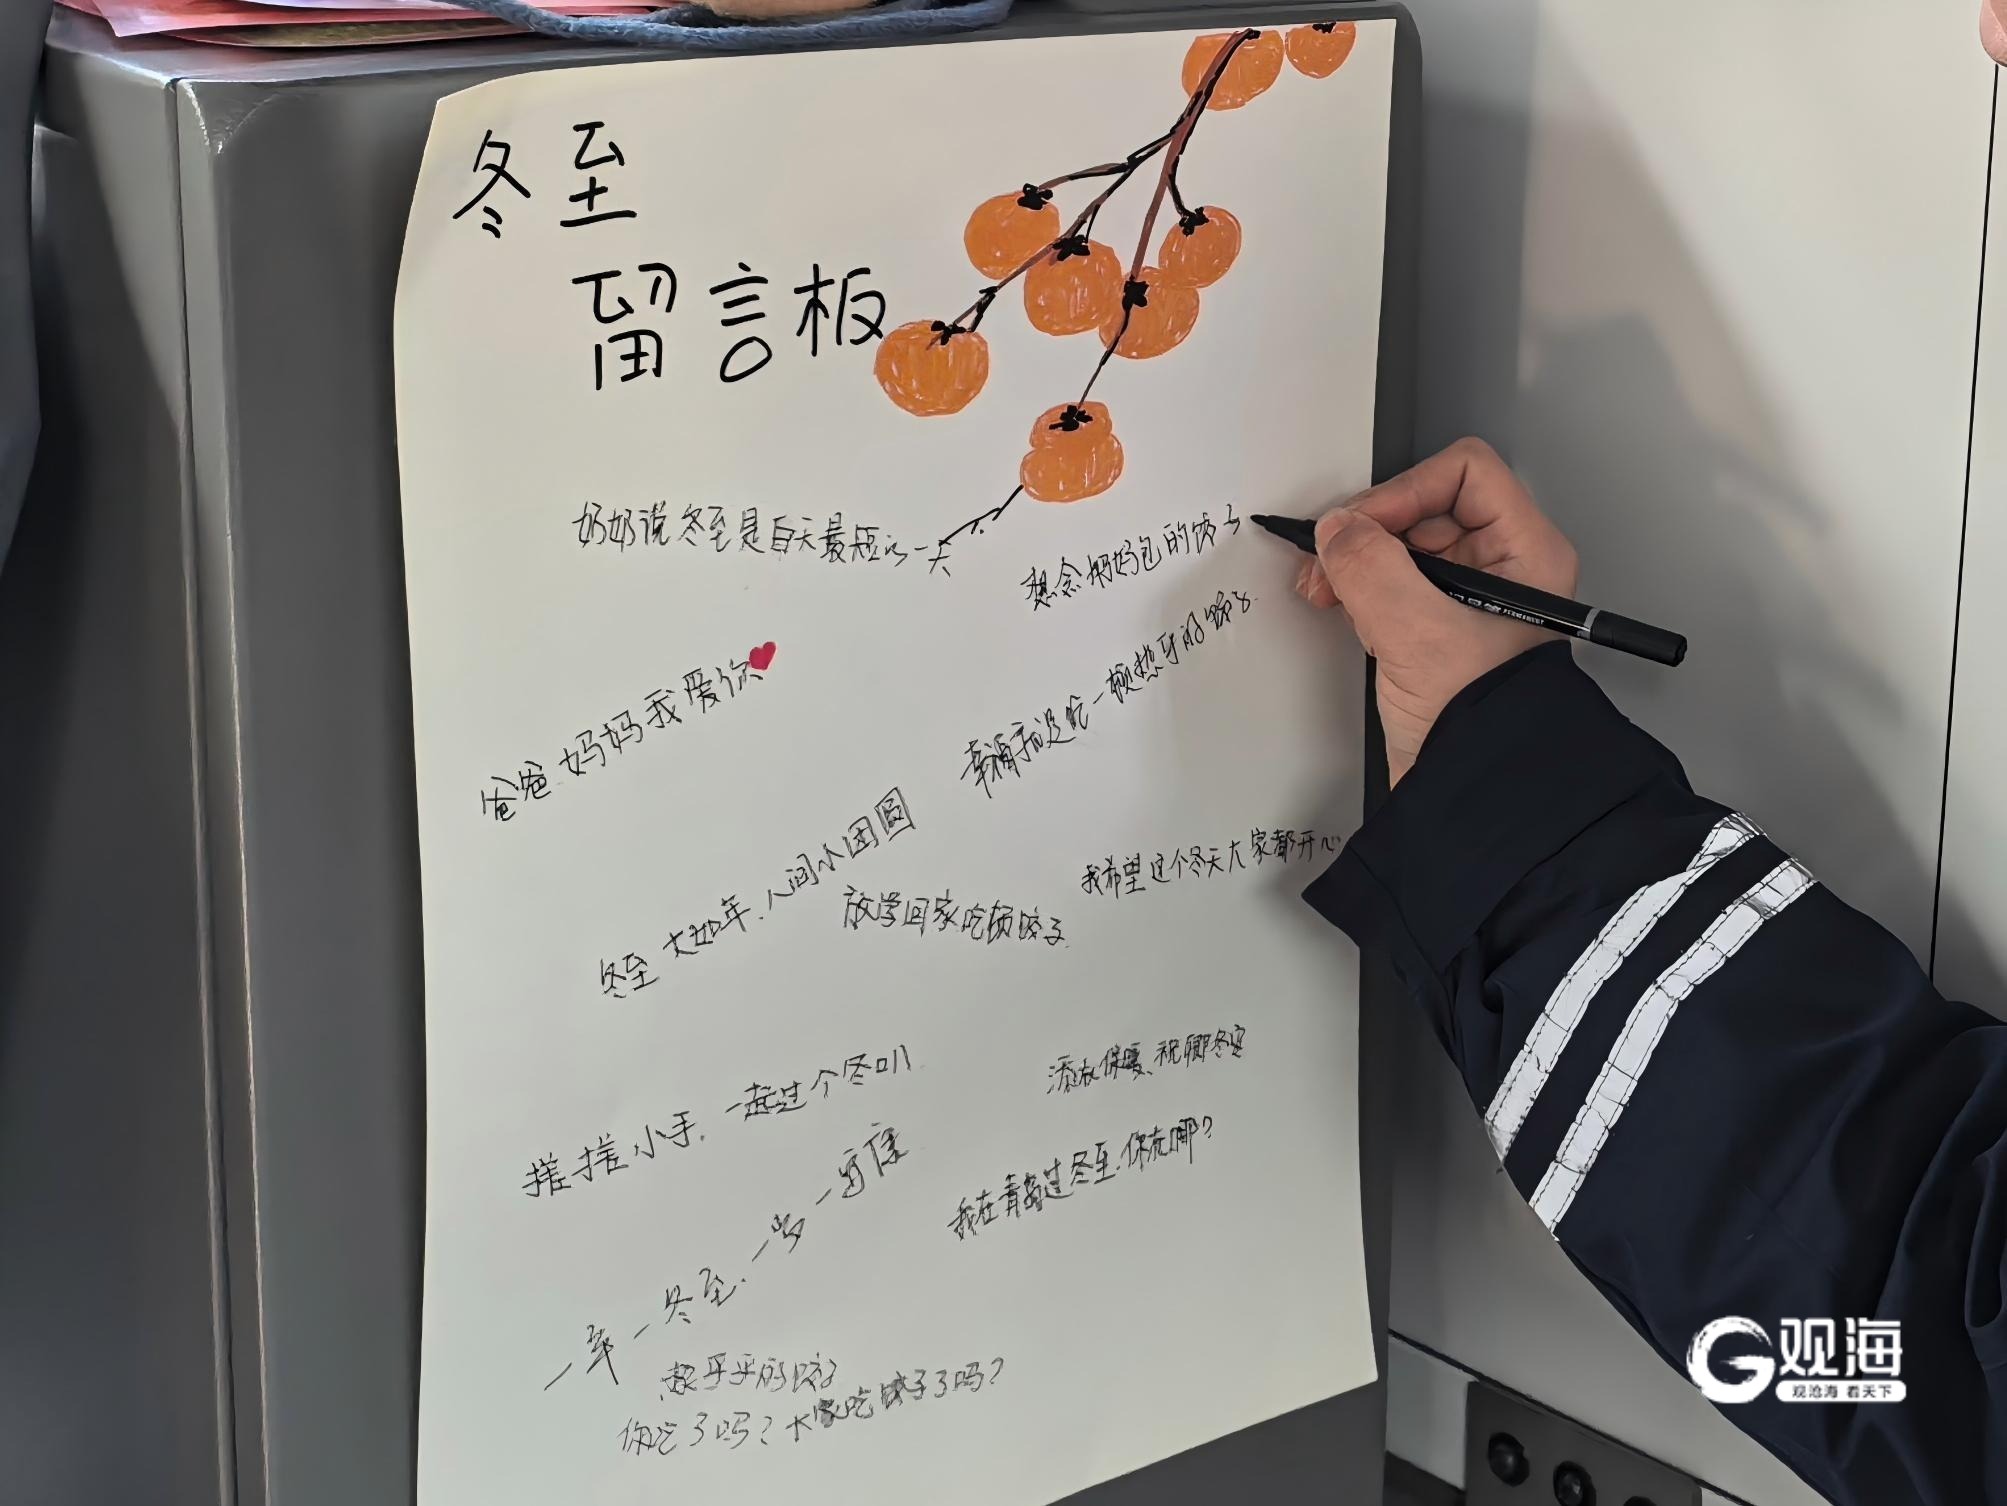 冬至
留言板
奶奶说冬至是白天最短的一天
想念妈妈包的饺子
爸爸、妈妈我爱你
幸福就是吃一顿热乎的饺子
冬至大如年，人间小团圆
我希望这个冬天大家都开心
放学回家吃顿饺子
搓搓小手，一起过个冬叭
添衣保暖、祝卿冬安
我在青岛过冬至，你在哪？
一年一冬至，一岁一安康
热乎乎的饺子
你吃了吗？大家吃饺子了吗？
观海
观沧海 看天下